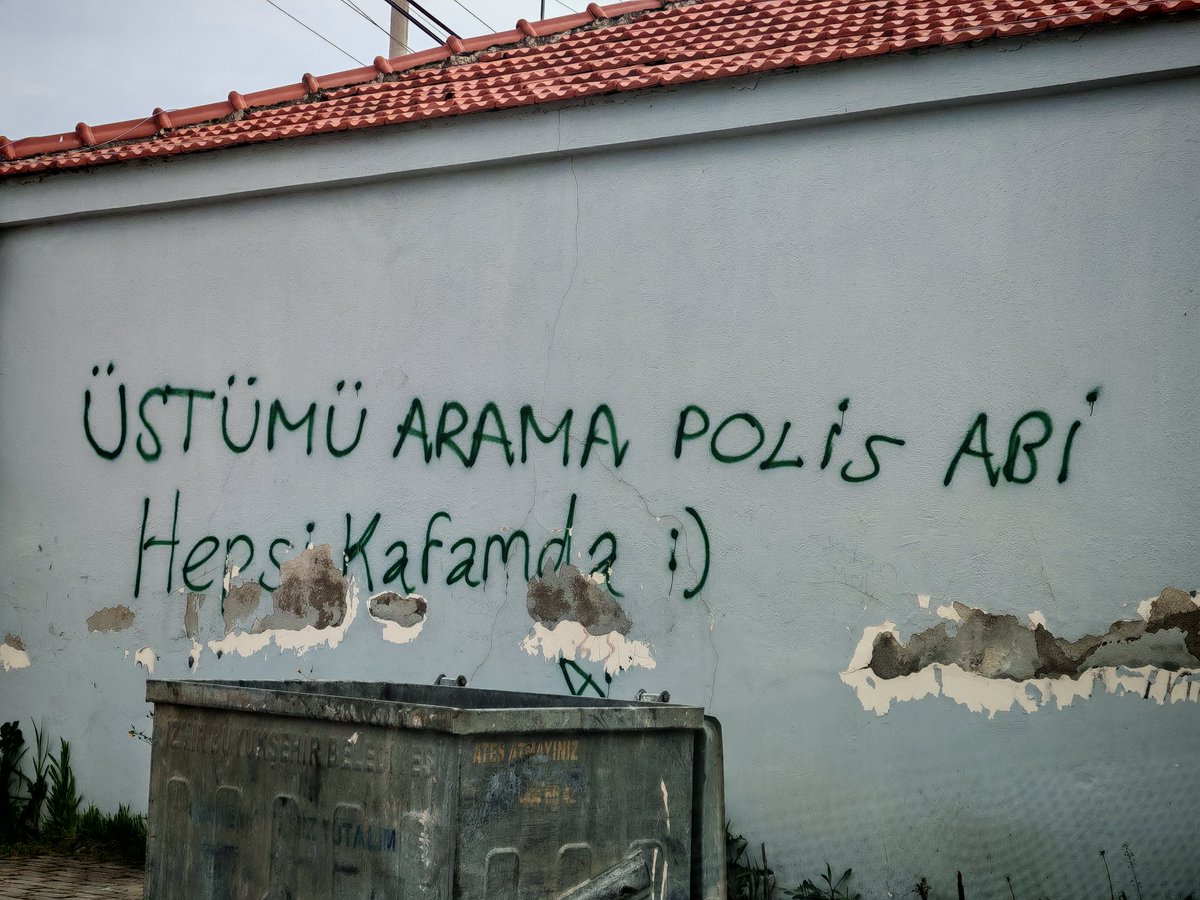 ÜSTÜMÜ ARAMA POLİS ABİ
Hepsi Kafamda :)
İZMİR BÜYÜKŞEHİR BELEDİYESİ
ATEŞ ATMAYINIZ